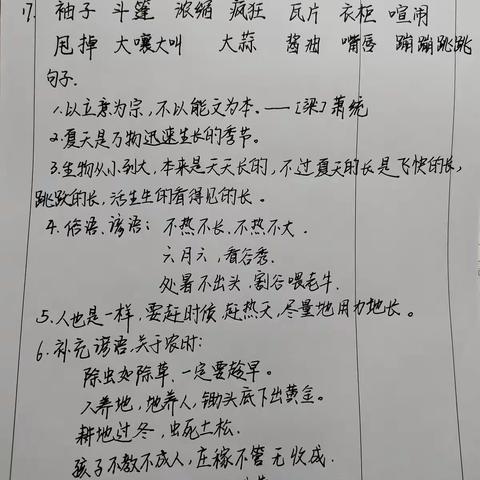 17. 袖子 斗篷 浓缩 疯狂 瓦片 衣柜 喧闹
甩掉 大嚷大叫 大蒜 酱油 嘴唇 蹦蹦跳跳
句子.
1.以立意为宗,不以能文为本。——[梁]萧统
2.夏天是万物迅速生长的季节。
3.生物从小到大,本来是天天长的,不过夏天的长是飞快的长,
跳跃的长,活生生的看得见的长。
4.俗语、谚语: 不热不长、不热不大.
六月六,看谷秀.
处暑不出头,割谷喂老牛.
5.人也是一样,要赶时候,赶热天,尽量地用力地长。
6.补充谚语,关于农时:
除虫如除草、一定要趁早。
人养地,地养人,锄头底下出黄金。
耕地过冬,虫死土松.
孩子不教不成人,庄稼不管无收成.